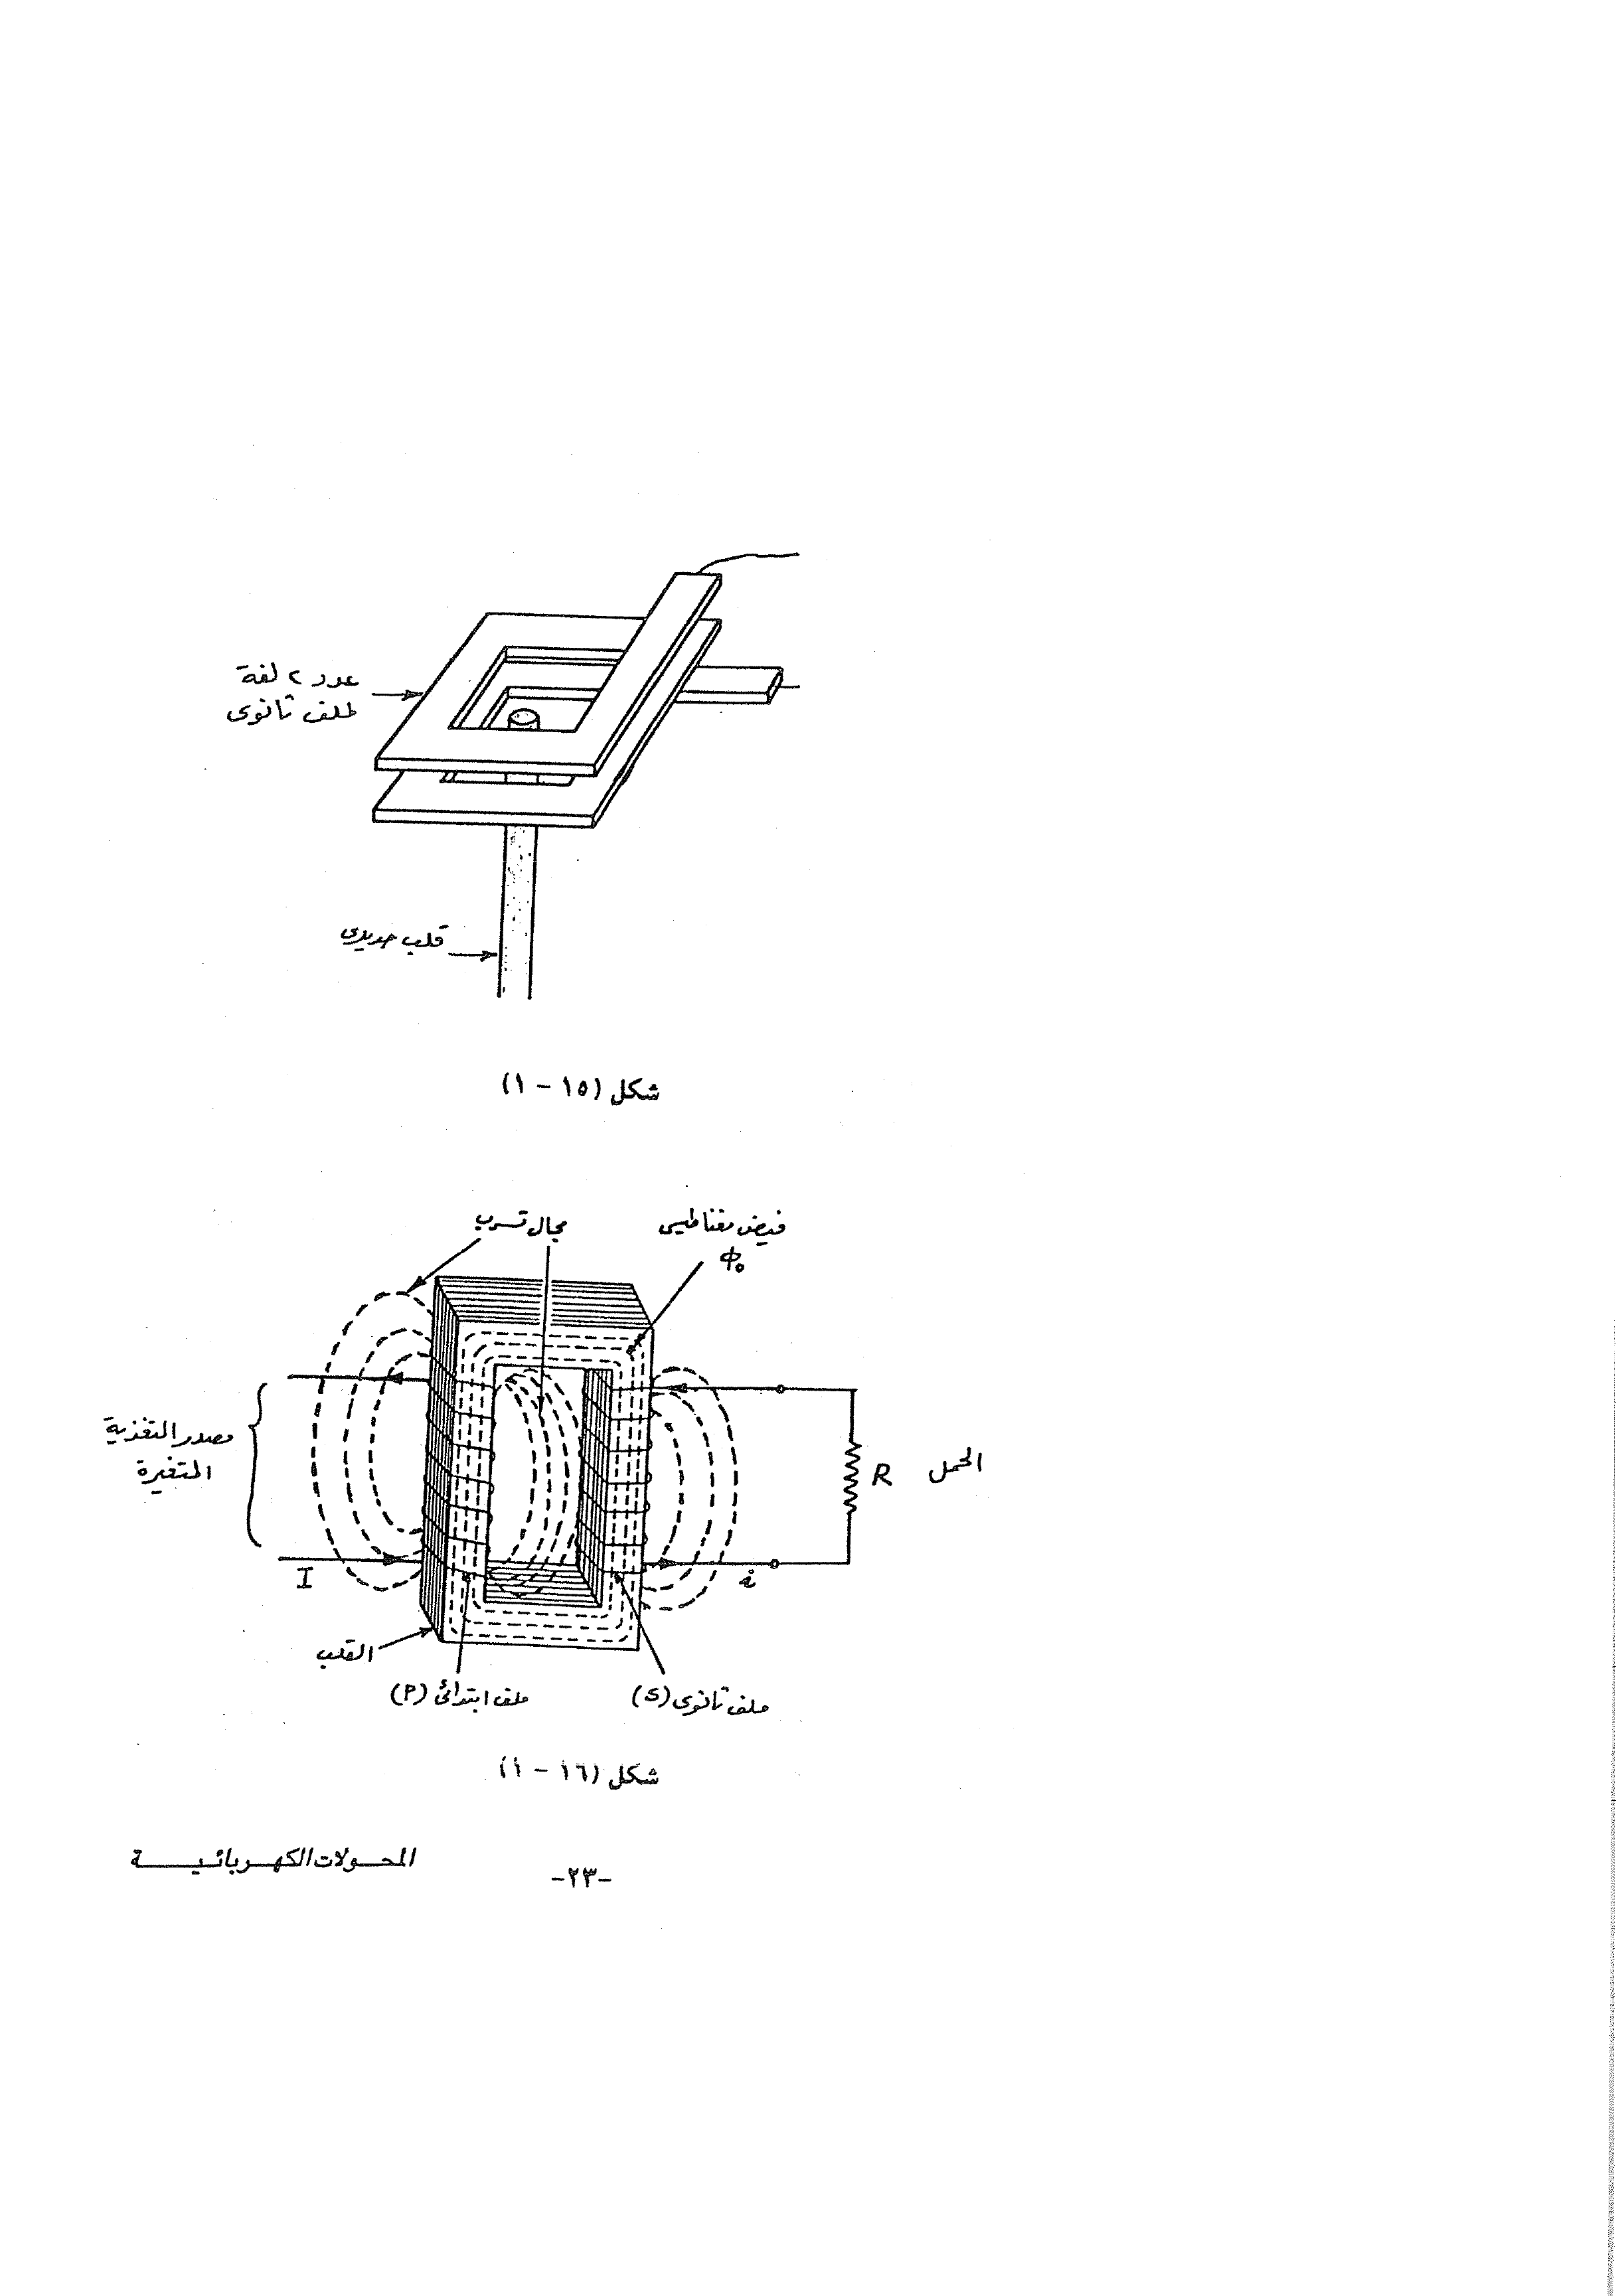 عدد ٢ لفة
ملف ثانوى
قلب حديدى
شكل (١٥ - ١)
مجال تسرب
فيض مغناطيسى
Φ₀
مصدر التغذية
المتغيرة
I
R
الحمل
i
القلب
ملف ابتدائى (P)
ملف ثانوى (S)
شكل (١٦ - ١)
المحولات الكهربائية
-٢٣-